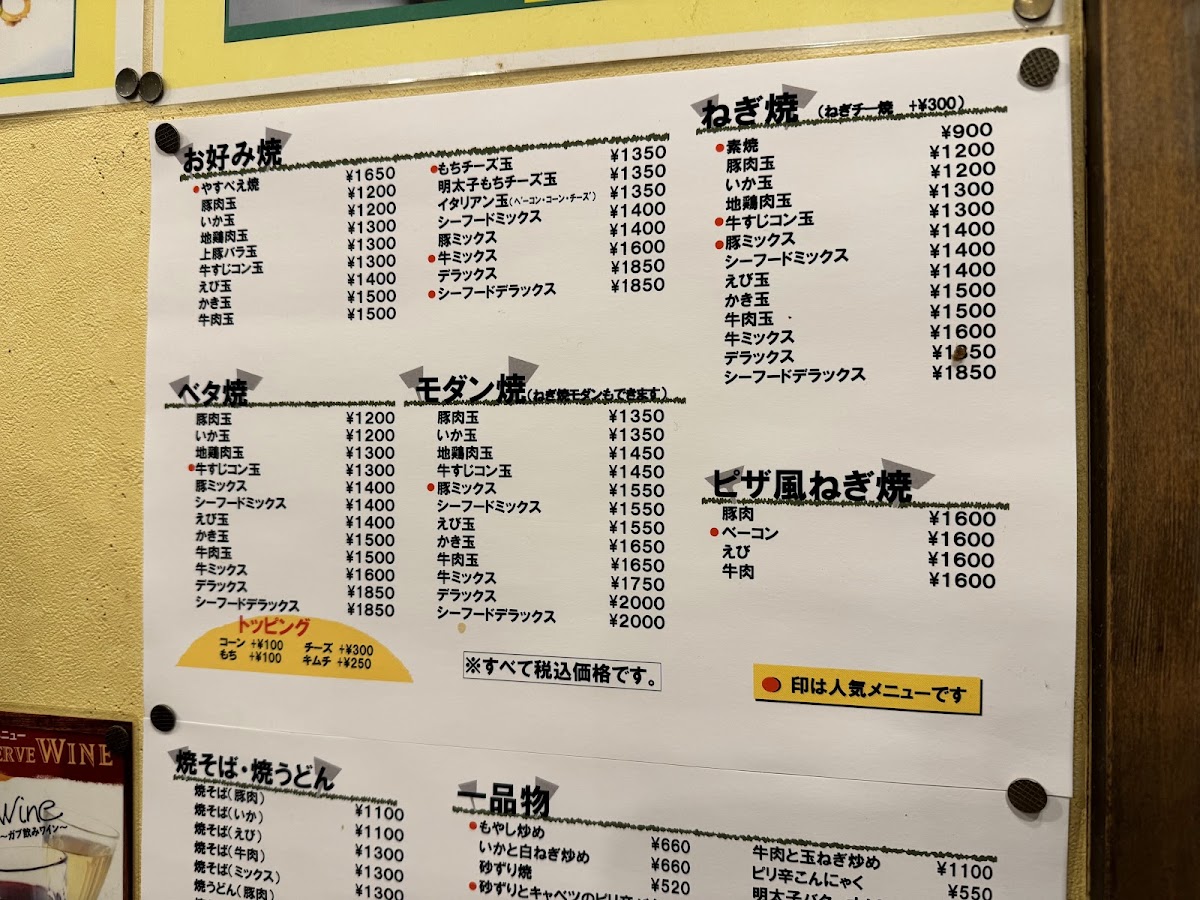 お好み焼
●やすべえ焼 ¥1650
豚肉玉 ¥1200
いか玉 ¥1200
地鶏肉玉 ¥1300
上豚バラ玉 ¥1300
牛すじコン玉 ¥1300
えび玉 ¥1400
かき玉 ¥1500
牛肉玉 ¥1500
●もちチーズ玉 ¥1350
明太子もちチーズ玉 ¥1350
イタリアン玉(ベーコン・コーン・チーズ) ¥1350
シーフードミックス ¥1400
豚ミックス ¥1400
●牛ミックス ¥1600
デラックス ¥1850
●シーフードデラックス ¥1850
ねぎ焼 (ねぎチー焼 +¥300)
●素焼 ¥900
豚肉玉 ¥1200
いか玉 ¥1200
地鶏肉玉 ¥1300
●牛すじコン玉 ¥1300
●豚ミックス ¥1400
シーフードミックス ¥1400
えび玉 ¥1400
かき玉 ¥1500
牛肉玉 ¥1500
牛ミックス ¥1600
デラックス ¥1850
シーフードデラックス ¥1850
ベタ焼
豚肉玉 ¥1200
いか玉 ¥1200
地鶏肉玉 ¥1300
●牛すじコン玉 ¥1300
豚ミックス ¥1400
シーフードミックス ¥1400
えび玉 ¥1400
かき玉 ¥1500
牛肉玉 ¥1500
牛ミックス ¥1600
デラックス ¥1850
シーフードデラックス ¥1850
トッピング
コーン +¥100 チーズ +¥300
もち +¥100 キムチ +¥250
モダン焼(ねぎ焼モダンもできます)
豚肉玉 ¥1350
いか玉 ¥1350
地鶏肉玉 ¥1450
牛すじコン玉 ¥1450
●豚ミックス ¥1550
シーフードミックス ¥1550
えび玉 ¥1550
かき玉 ¥1650
牛肉玉 ¥1650
牛ミックス ¥1750
デラックス ¥2000
シーフードデラックス ¥2000
※すべて税込価格です。
ピザ風ねぎ焼
豚肉 ¥1600
●ベーコン ¥1600
えび ¥1600
牛肉 ¥1600
● 印は人気メニューです
焼そば・焼うどん
焼そば(豚肉) ¥1100
焼そば(いか) ¥1100
焼そば(えび) ¥1300
焼そば(牛肉) ¥1300
焼そば(ミックス) ¥1300
焼うどん(豚肉)
一品物
●もやし炒め ¥660
いかと白ねぎ炒め ¥660
砂ずり焼 ¥520
●砂ずりとキャベツのピリ辛
牛肉と玉ねぎ炒め ¥1100
ピリ辛こんにゃく ¥550
明太子バター
ニュー
ERVE WINE
Wine
～ガブ飲みワイン～